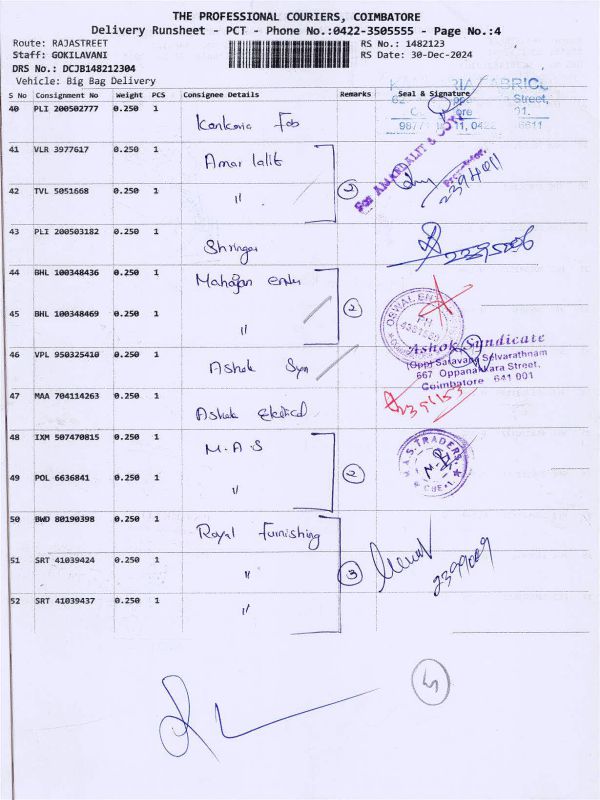 THE PROFESSIONAL COURIERS, COIMBATORE
Delivery Runsheet - PCT - Phone No.:0422-3505555 - Page No.:4
Route: RAJASTREET RS No.: 1482123
Staff: GOKILAVANI RS Date: 30-Dec-2024
DRS No.: DCJB148212304
Vehicle: Big Bag Delivery
S No Consignment No Weight PCS Consignee Details Remarks Seal & Signature
40 PLI 200502777 0.250 1 Kankaria Fab
Street,
98771 11, 0422 6611
41 VLR 3977617 0.250 1 Amar lalit
For AMARLALIT & CO
Proprietor.
2394011
42 TVL 5051668 0.250 1 " 2
43 PLI 200503182 0.250 1 Shringar 2395206
44 BHL 100348436 0.250 1 Mahajan enter 2
OSWAL ENT
PH
45 BHL 100348469 0.250 1 "
46 VPL 950325410 0.250 1 Ashok Syn
Ashok Syndicate
(Opp) Saravana Selvarathnam
667 Oppanakkara Street,
Coimbatore 641 001
47 MAA 704114263 0.250 1 Ashok electrical 2391153
48 IXM 507470815 0.250 1 M.A.S
M.A.S. TRADERS
CBE - 1.
49 POL 6636841 0.250 1 " 2
50 BWD 80190398 0.250 1 Royal Furnishing
51 SRT 41039424 0.250 1 " 3 2399009
52 SRT 41039437 0.250 1 "
5